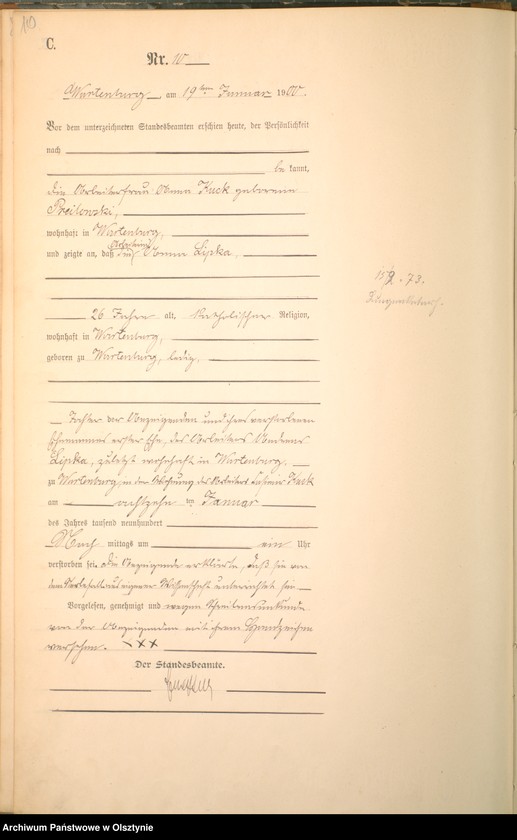 110.
C.
Nr. 10
Wartenburg, am 19ten Januar 1900.
Vor dem unterzeichneten Standesbeamten erschien heute, der Persönlichkeit
nach
be kannt,
die Arbeiterfrau Anna Kuck geborene
Preilowski,
wohnhaft in Wartenburg,
und zeigte an, daß die Anna Lipka,
26 Jahre alt, katholischer Religion,
wohnhaft in Wartenburg,
geboren zu Wartenburg, ledig,
Tochter der Anzeigenden und ihres verstorbenen
Ehemannes erster Ehe, des Arbeiters Andreas
Lipka, zuletzt wohnhaft in Wartenburg.
zu Wartenburg, in der Wohnung des Arbeiters Kuck
am achtzehn ten Januar
des Jahres tausend neunhundert
Nach mittags um ein Uhr
verstorben sei. Die Anzeigende erklärte, daß sie von
dem Sterbefall aus eigener Wissenschaft unterrichtet sei
Vorgelesen, genehmigt und wegen Schreibensunkunde
von der Anzeigenden mit ihrem Handzeichen
versehen. XXX
Der Standesbeamte.
Archiwum Państwowe w Olsztynie